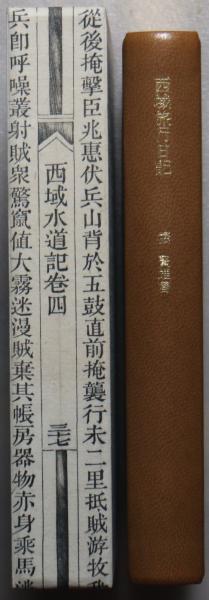 西域旅行日記
堀 賢雄著
從後掩擊臣兆惠伏兵山背於五鼓直前掩襲行未二里抵賊游牧
西域水道記卷四
三七
兵卽呼噪叢射賊衆驚竄値大霧迷漫賊棄其帳房器物赤身乘馬